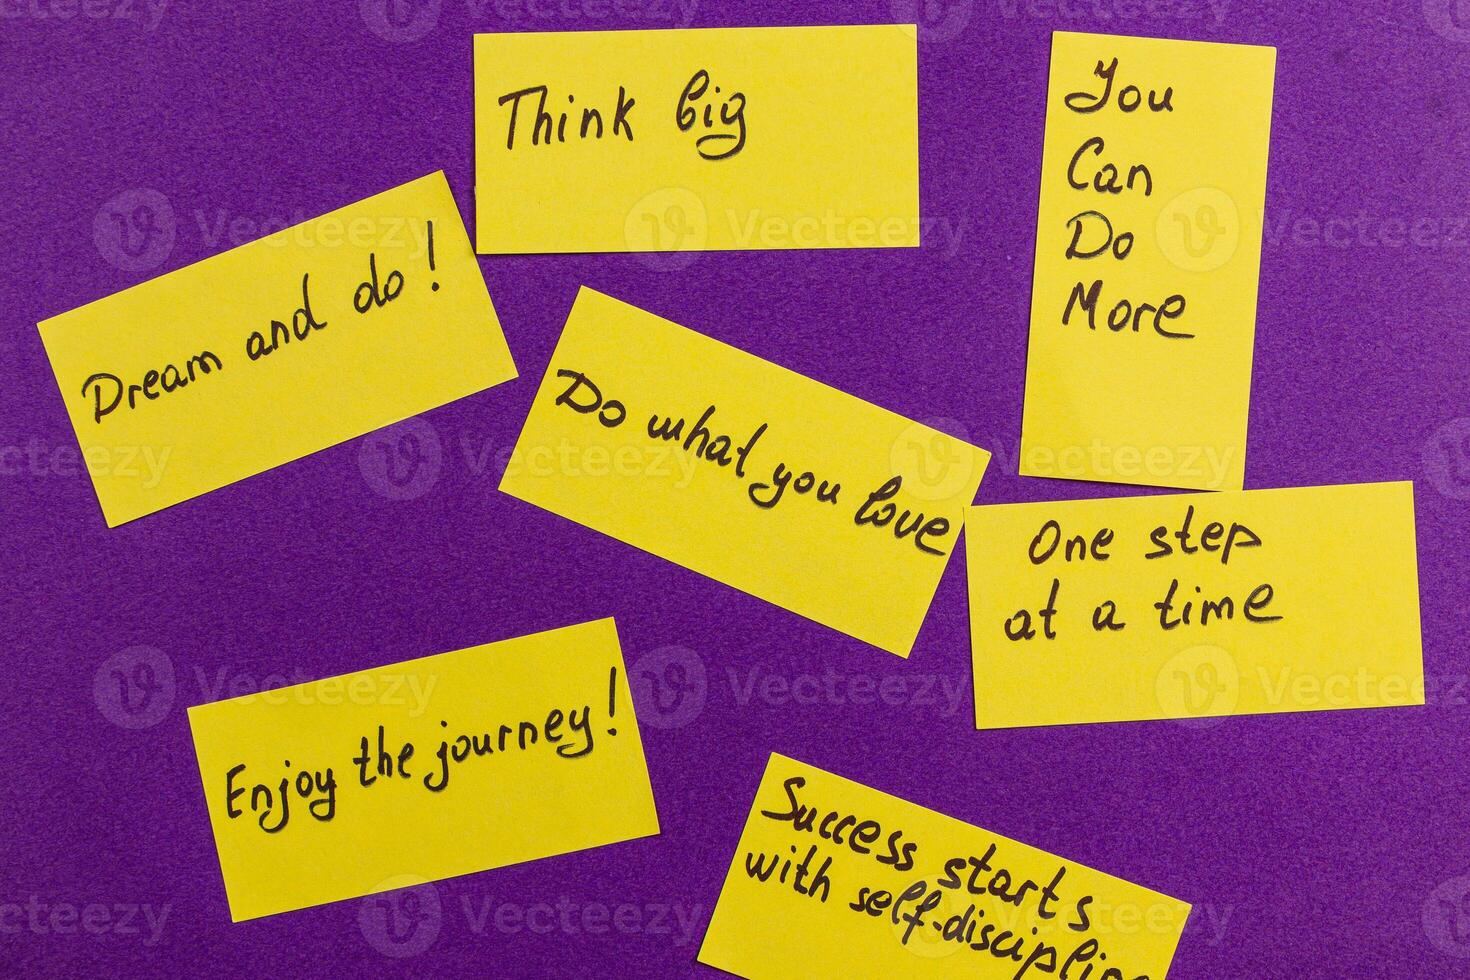 Think big
You
Can
Do
More
Dream and do!
Do what you love
One step
at a time
Enjoy the journey!
Success starts
with self-disciplin
Vecteezy